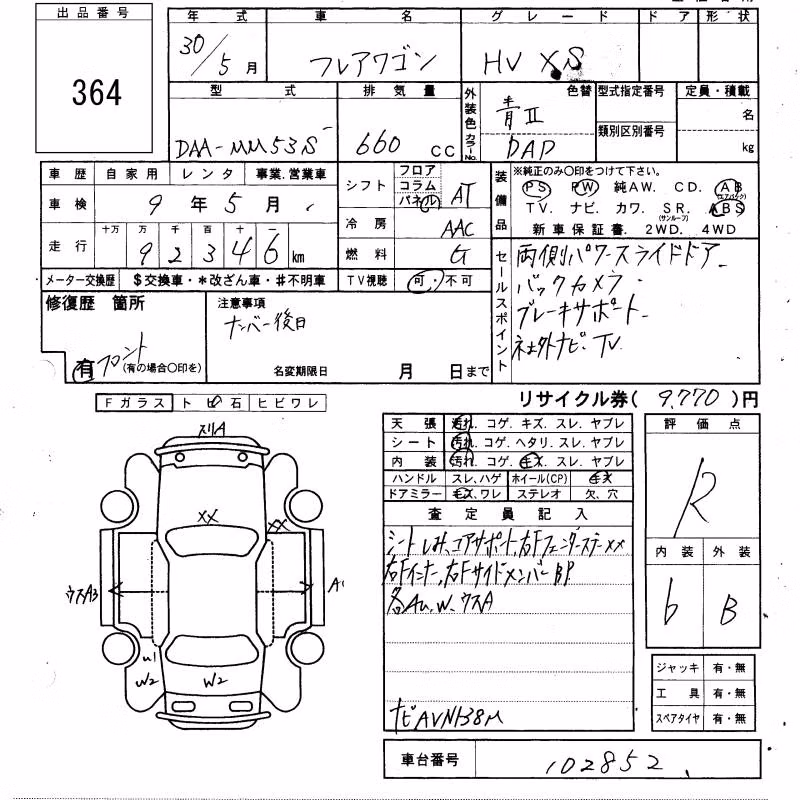 出品番号
364
年 式 車 名 グ レ ー ド ド ア 形 状
30/5 月 フレアワゴン HV XS
型 式 排 気 量 外装色 カラーNo. 色替 型式指定番号 定員・積載
DAA-MM53S 660 CC 青II 類別区別番号 名
kg
車 歴 自 家 用 レ ン タ 事業.営業車
車 検 9 年 5 月
走 行 十万 万 千 百 十 一
9 2 3 4 6 km
メーター交換歴 $交換車・*改ざん車・#不明車
シフト フロア コラム パネル AT
冷 房 AAC
燃 料 G
TV視聴 可・不可
装備品 ※純正のみ○印をつけて下さい。
PS PW 純AW. CD. AB (エアバック)
TV. ナビ. カワ. SR. (サンルーフ) ABS
新 車 保 証 書. 2WD. 4WD
セールスポイント
両側パワースライドドア
バックカメラ
ブレーキサポート
社外ナビ. TV
修復歴 箇所
有 フロント (有の場合○印を)
注意事項
ナンバー後日
名変期限日 月 日まで
リサイクル券( 9,770 )円
Fガラス ト ビ 石 ヒビワレ
スリA
XX
XX
ウスA3
A1
W1
W2
W2
天 張 汚れ. コゲ. キズ. スレ. ヤブレ
シート 汚れ. コゲ. ヘタリ. スレ. ヤブレ
内 装 汚れ. コゲ. キズ. スレ. ヤブレ
ハンドル スレ, ハゲ ホイール(CP) キズ
ドアミラー キズ, ワレ ステレオ 欠、穴
査 定 員 記 入
シートしみ、コアサポート、右FフェンダーステーXX
右Fインナー、右FサイドメンバーBP
各AU、W、ウスA
ナビAVN138M
評 価 点
R
内 装 外 装
b B
ジャッキ 有・無
工 具 有・無
スペアタイヤ 有・無
車台番号 102852